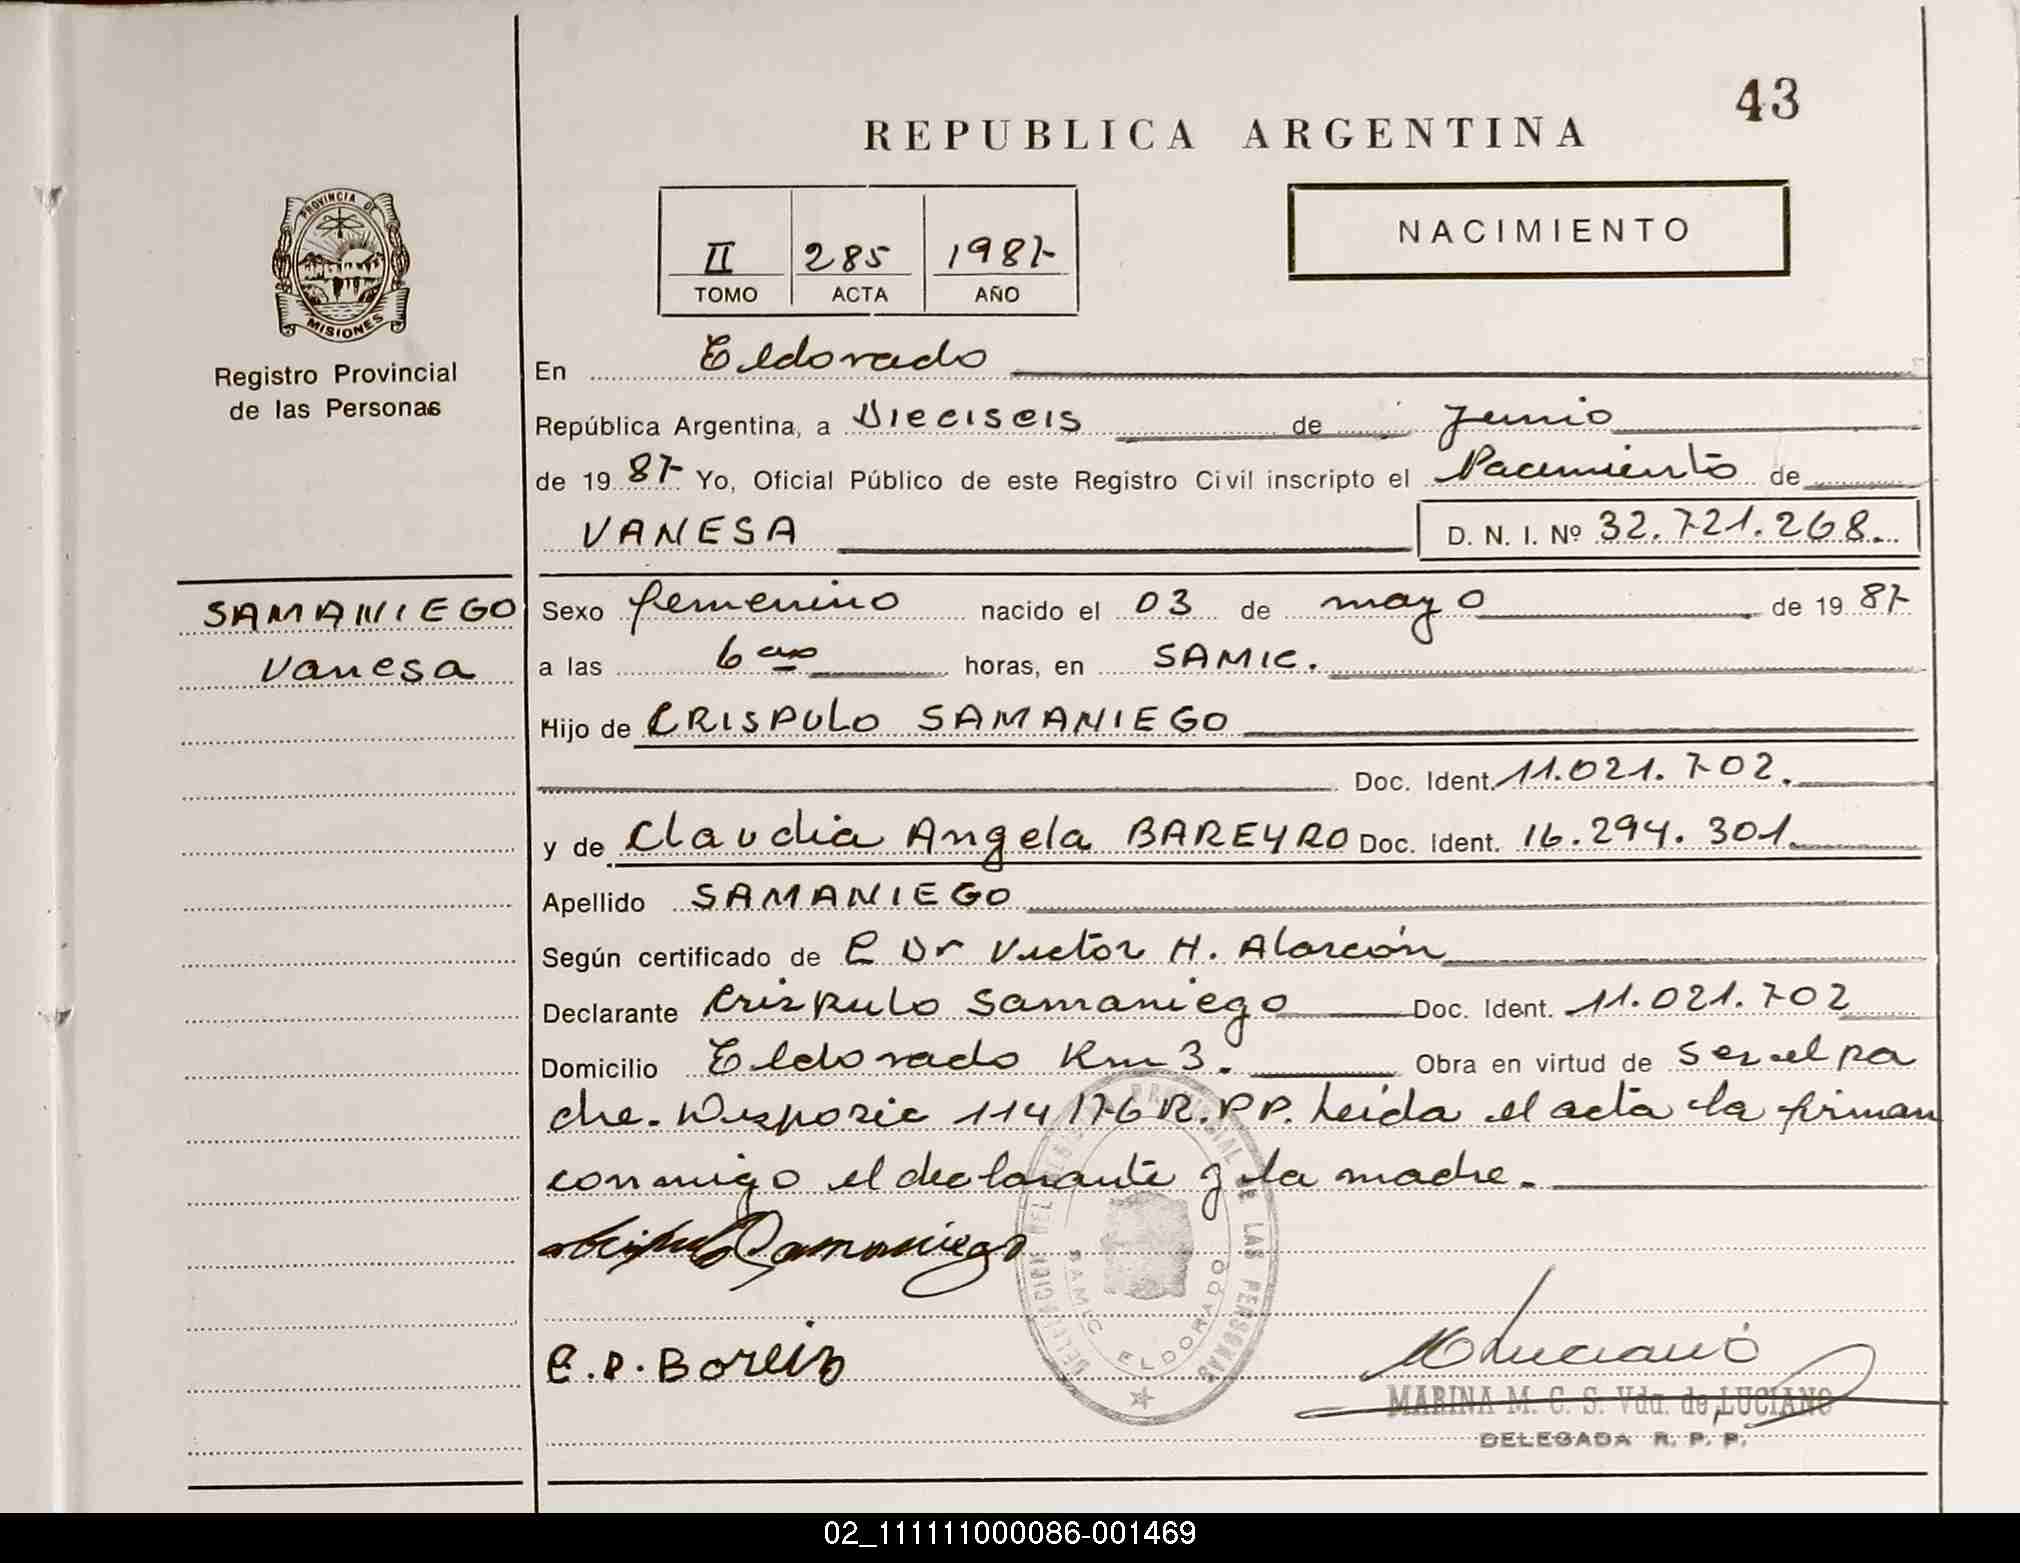 43
REPUBLICA ARGENTINA
PROVINCIA DE
MISIONES
II 285 1987
TOMO ACTA AÑO
NACIMIENTO
Registro Provincial
de las Personas
En Eldorado
República Argentina, a Dieciseis de Junio
de 1987 Yo, Oficial Público de este Registro Civil inscripto el Nacimiento de
VANESA D. N. I. Nº 32.721.268.
SAMANIEGO
Vanesa
Sexo femenino nacido el 03 de mayo de 1987
a las 6 horas, en SAMIC.
Hijo de CRISPULO SAMANIEGO
Doc. Ident. 11.021.702.
y de Claudia Angela BAREYRO Doc. Ident. 16.294.301.
Apellido SAMANIEGO
Según certificado de Dr Victor H. Alarcón
Declarante Crispulo Samaniego Doc. Ident. 11.021.702
Domicilio Eldorado Km 3. Obra en virtud de ser el pa
dre. 114/76 R.P.P. Leida el acta la firman
conmigo el declarante y la madre.
Samaniego
DELEGACION DEL REGISTRO PROVINCIAL DE LAS PERSONAS
SAMIC ELDORADO
Luciano
MARINA M. C. S. Vda. de LUCIANO
DELEGADA R. P. P.
02_111111000086-001469